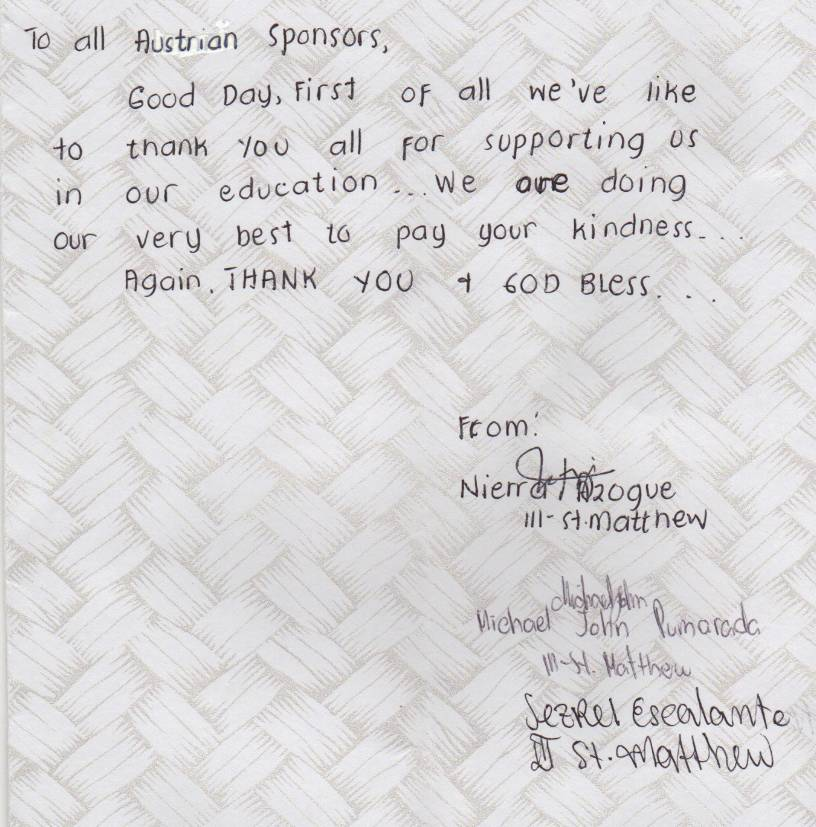 To all Austrian Sponsors,
Good Day, First of all we've like
to thank you all for supporting us
in our education... We are doing
our very best to pay your kindness...
Again. THANK YOU & GOD Bless...
From:
Nierra Azogue
III-St. Matthew
Michael John
Michael John Pumarada
III-St. Matthew
Jezrel Escalante
III St. Matthew